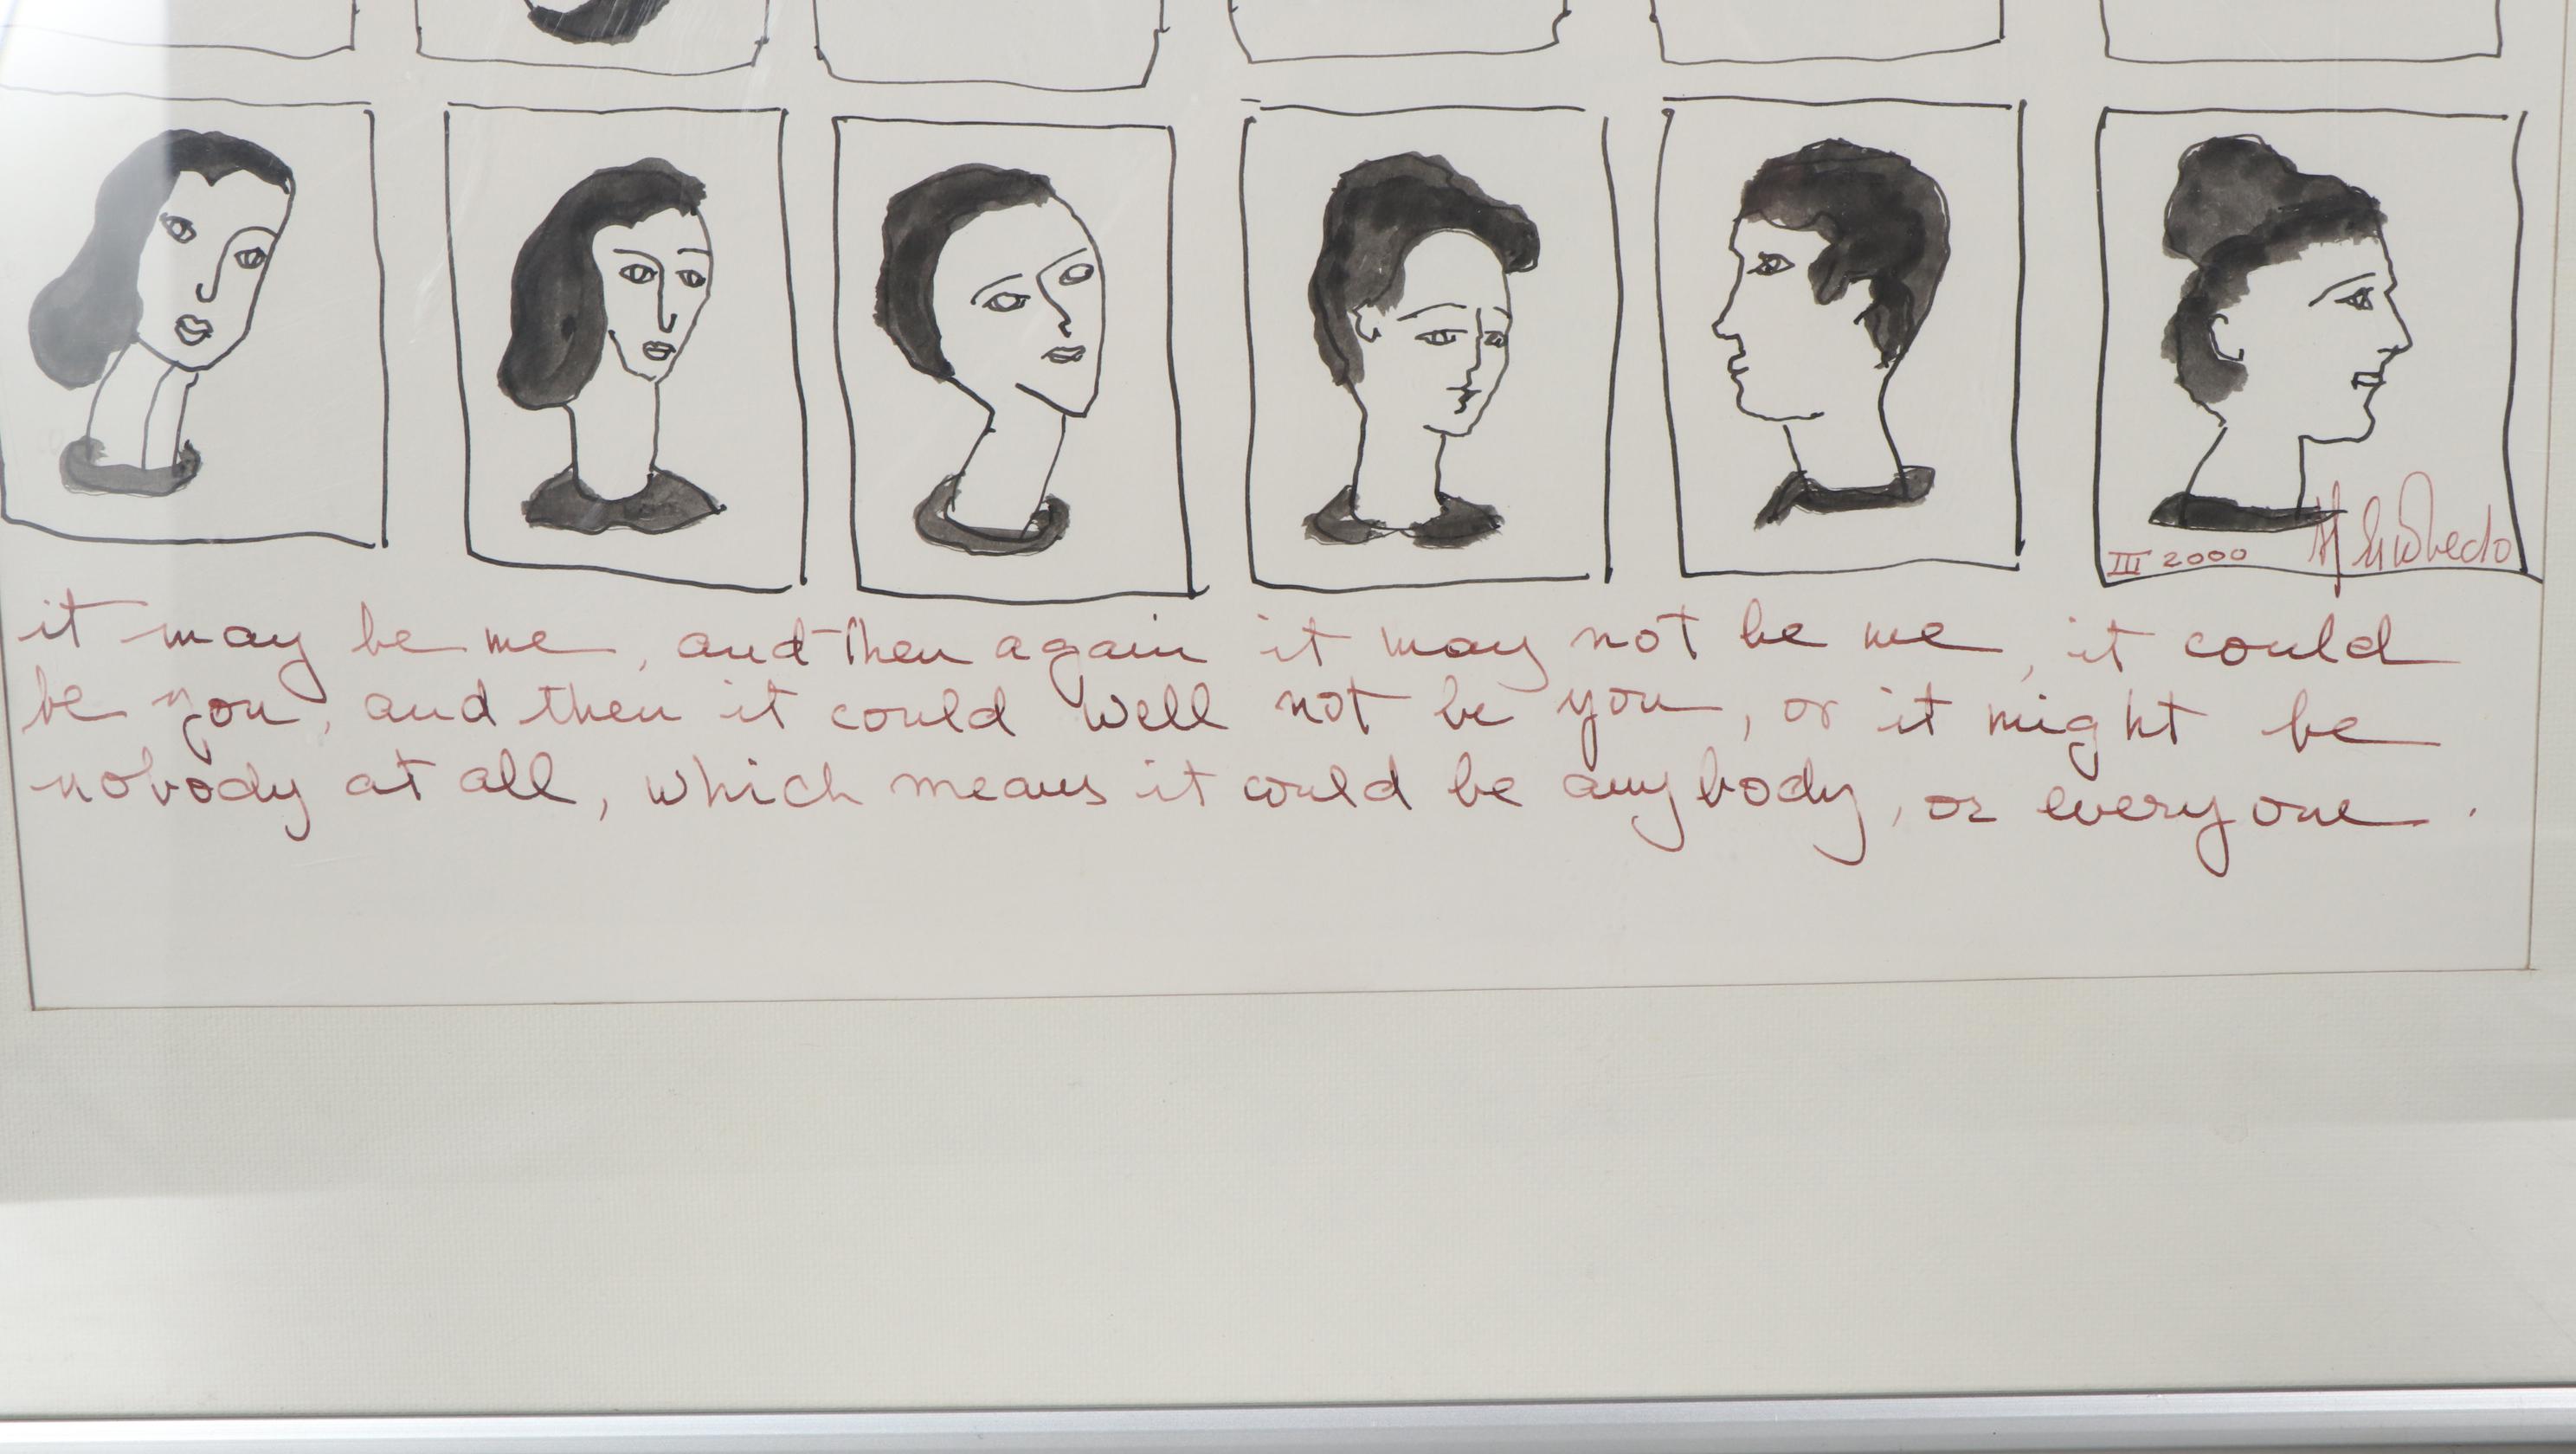 III 2000
it may be me, and then again it may not be me, it could
be you, and then it could well not be you, or it might be
nobody at all, which means it could be anybody, or everyone.